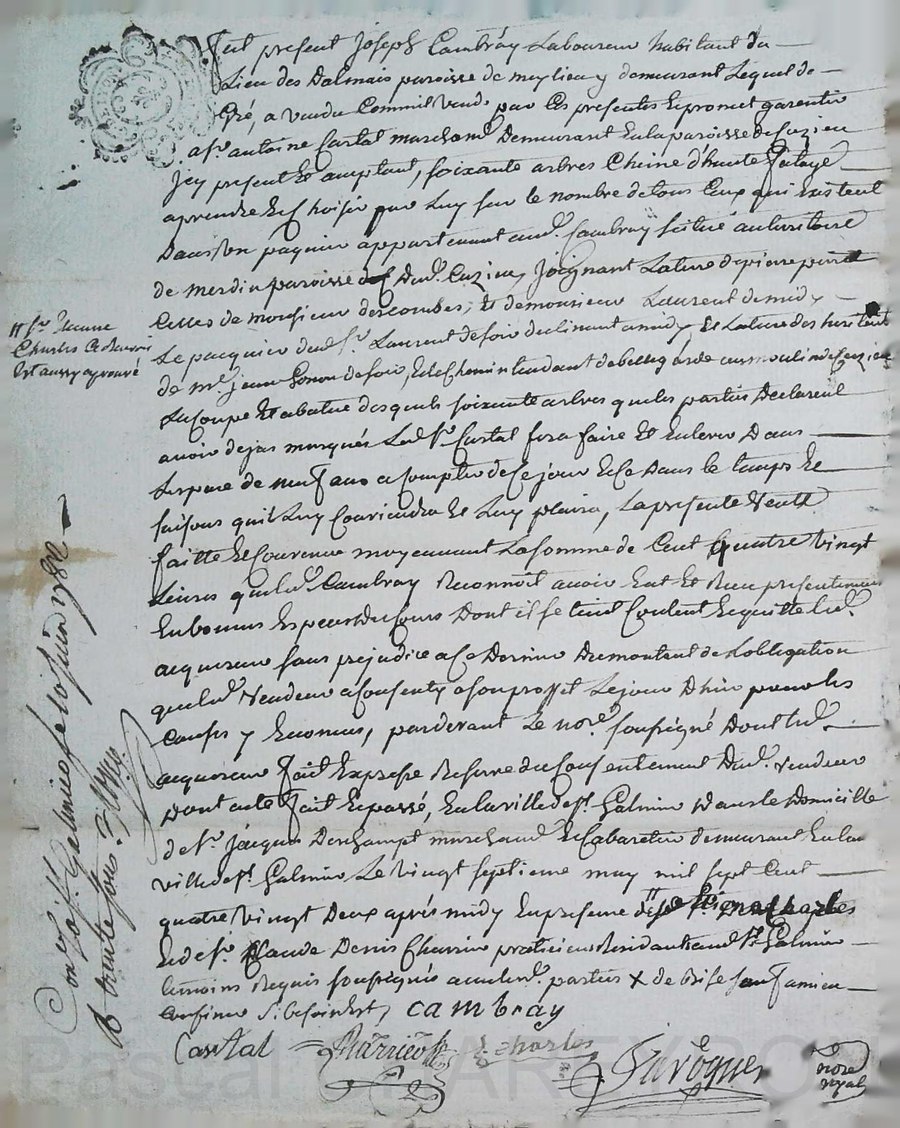 fut présent Joseph Cambray Laboureur habitant du
Lieu des Dalmais paroisse de meylieu y demeurant Lequel de
Gré, a vendu Comme il vend par Ces présentes et promet garentir
a sr. antoine Castal marchand Demeurant en la paroisse de Cuzieu
Jcy present et acceptant, soixante arbres Chene d'haute futaye
a prendre et Choisir par Luy sur le nombre de tous Ceux qui Existent
Dans son paquier appartenant aud. Cambray situé au territoire
de merdin paroisse dud. Cuzieu, Joignant La terre de
Celles de monsieur descombes; et de monsieur Laurent de midy
Le pacquier dud. sr. Laurent de soir declinant a midy, Et La terre des
de me. jean Gonon de soir, et Le Chemin tendant de bellegarde au moulin de Cuzieu
La Coupe Et abatue desquels soixante arbres que les parties Declarent
avoir dejas marqués Led. sr. Castal fera faire Et Enlever Dans
Lespace de neuf ans a compter de Ce jour et Ce Dans le temps Et
saisons quil Luy Conviendra Et Luy plaira, La presente Vente
faitte Et Convenue moyennant La somme de Cent quatre vingt
Livres que led. Cambray Reconnoit avoir Eut Et Reçu presentement
En bonnes Especes du Cours Dont il se tient Content Et quitte led.
acquereur sans prejudice a Ce Dernier Du montant de Lobligation
que led. Vendeur a Consenty a son proffit Le jour D'hier pour les
Causes y Enoncées, pardevant Le nore. soussigné Dont led.
acquereur fait Expresse Reserve du Consentement Dud. Vendeur
Dont acte fait Et passé, En la ville de st. Galmier Dans le Domicille
de sr. Jacques Deschamps marchand Et Cabaretier demeurant En lad.
ville de st. Galmier Le vingt septieme may mil sept Cent
quatre vingt Deux après midy En presence de
Et de sr. Claude Denis Charrier praticien Residant aud. st. Galmier
temoins Requis soussignés avec lesd. parties
Confiner si besoin Est, cambray
Castal Charrier Charles
Favoque
nore
royal
sr Etienne
Charles Ci
Est aussy aprouvé
Con. a st. Galmier le 10 juin 1782
R trente sous